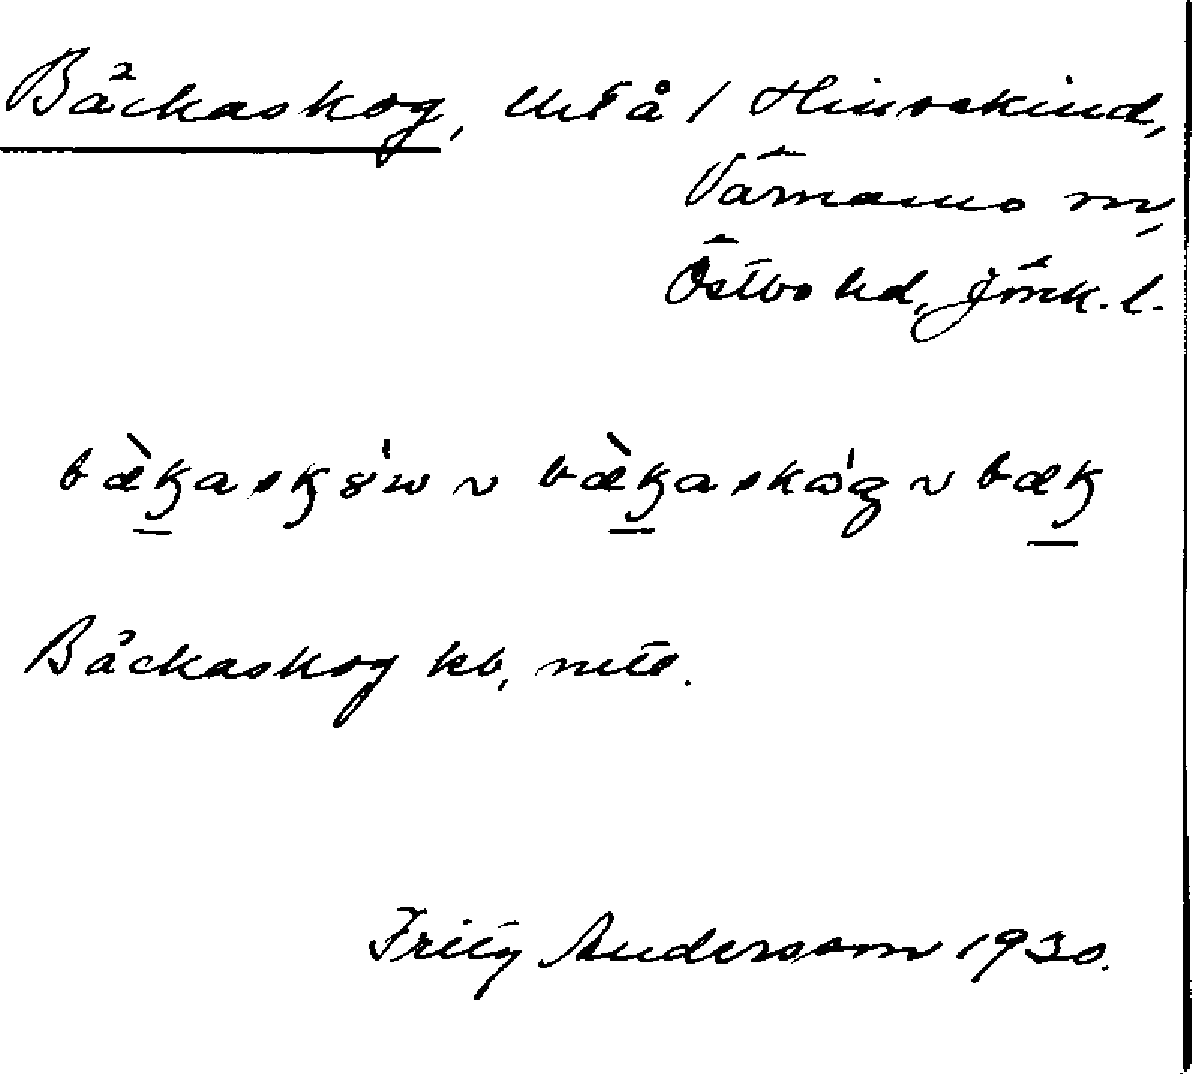 Bäckaskog, lht å 1 Hindsekind,
Värnamo sn,
Östbo hd, Jönk. l.
bæ̀kasków ~ bæ̀kaskóg ~ bæk
Bäckaskog kb, mtl.
Fritz Andersson 1930.